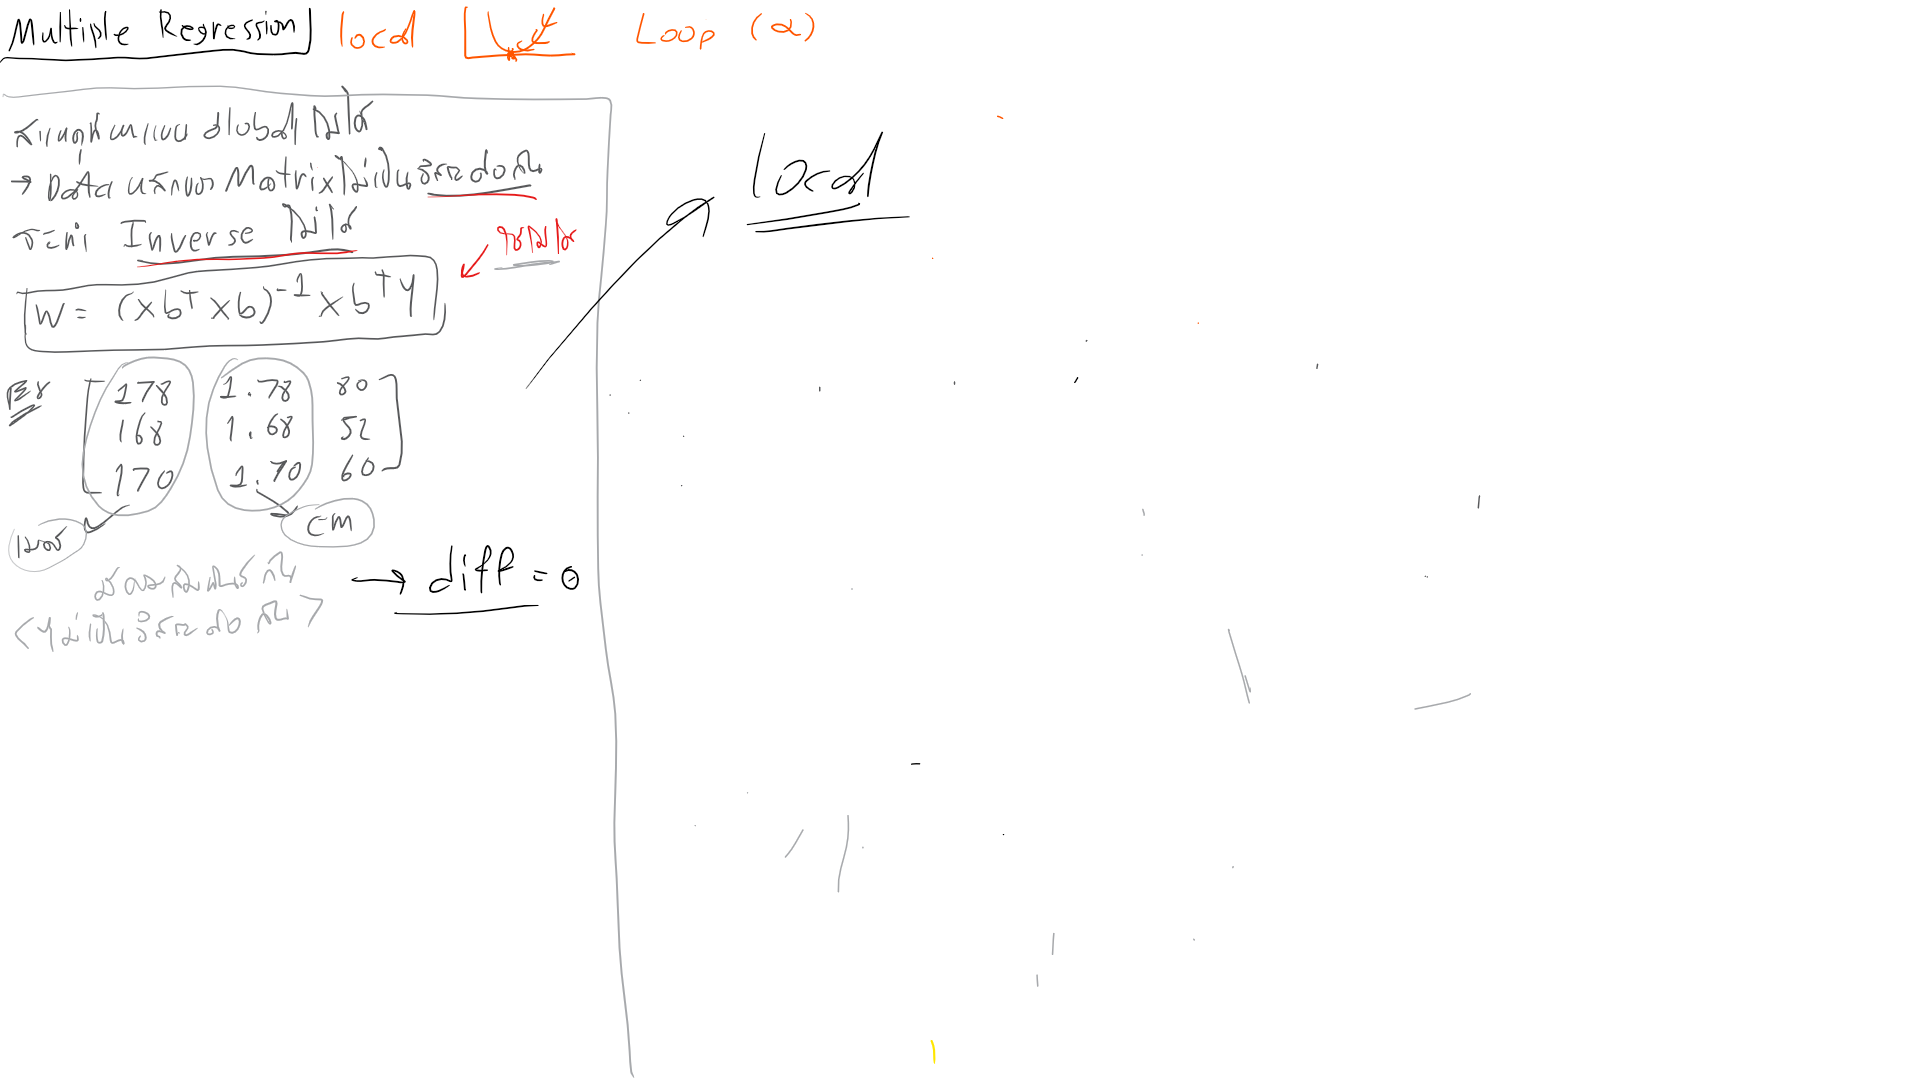 Multiple Regression local Loop (α)
สาเหตุที่หาแบบ Global ไม่ได้
→ Data หลักของ Matrix ไม่เป็นอิสระต่อกัน
จะทำ Inverse ไม่ได้
ใช้ไม่ได้
W = (xb^T xb)^-1 xb^T y
Ex
178 1.78 80
168 1.68 52
170 1.70 60
เมตร cm
มีความสัมพันธ์กัน → diff = 0
<ไม่เป็นอิสระต่อกัน>
local